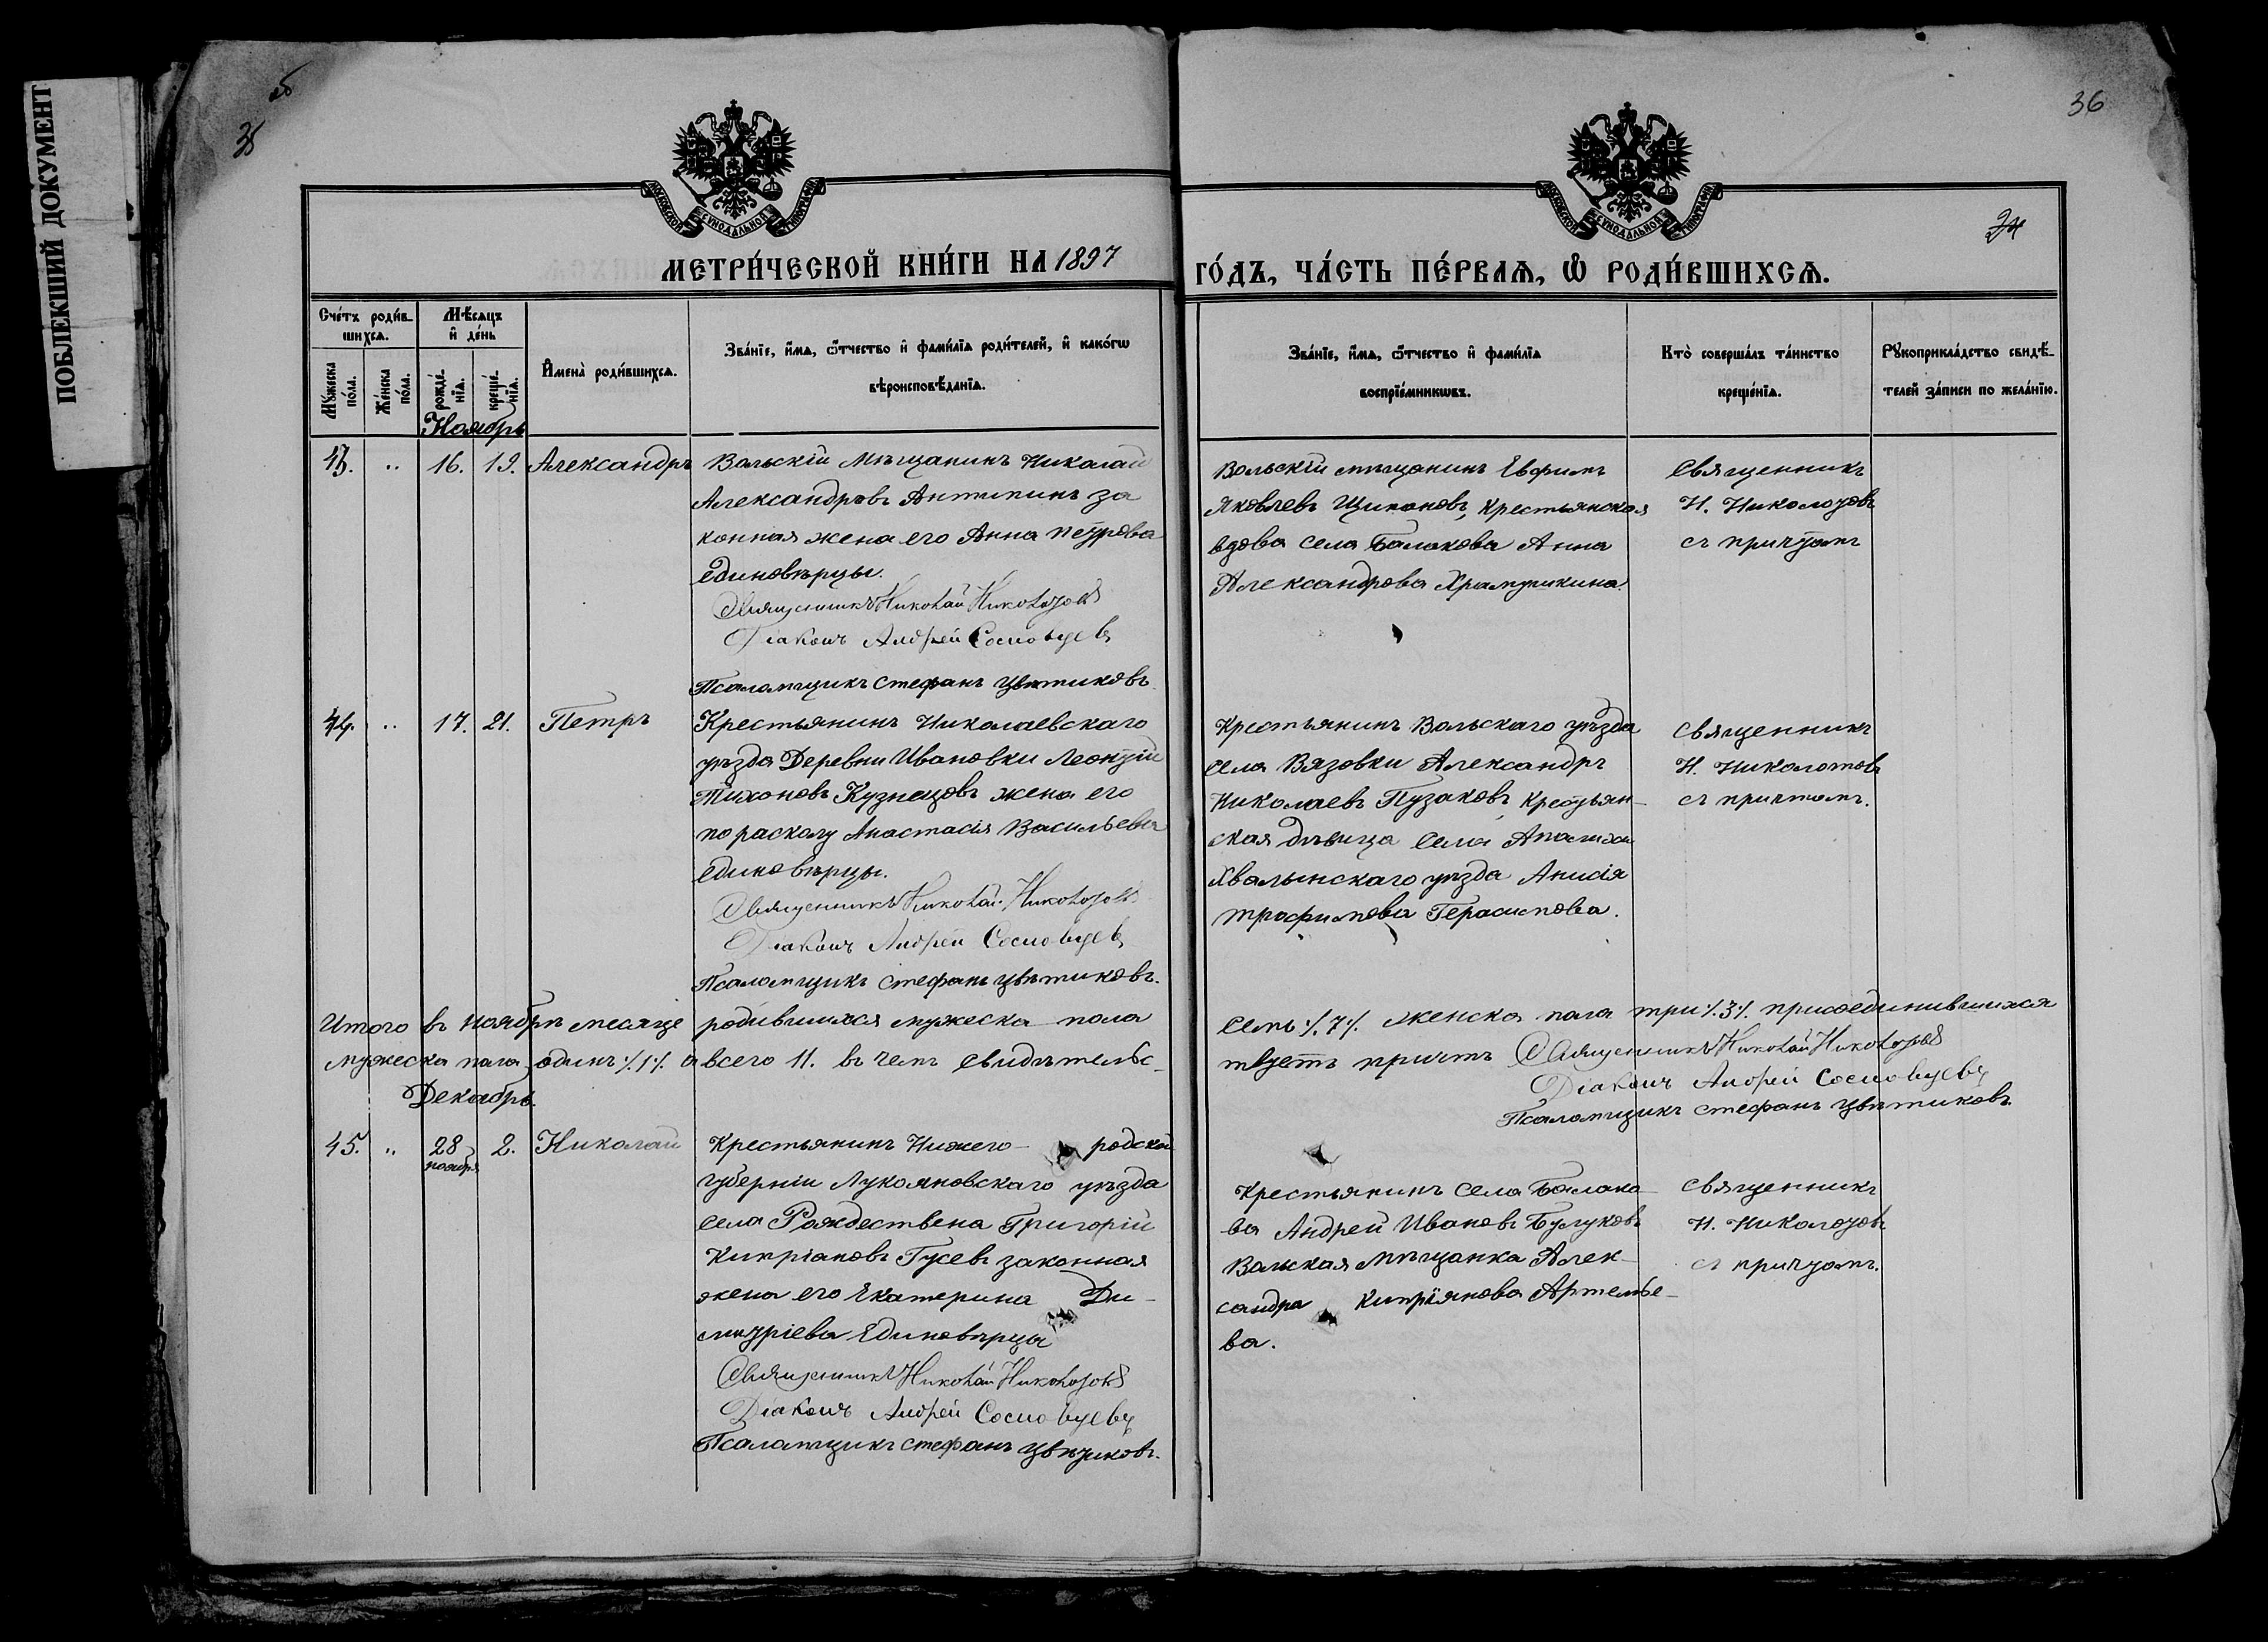 ПОБЛЕКШИЙ ДОКУМЕНТ
36
МЕТРИ́ЧЕСКОЙ КНИ́ГИ НА 1897
ГО́ДЪ, ЧА́СТЬ ПЕ́РВАѦ, Ѡ҆ РОДИ́ВШИХСѦ.
Сче́тъ роди́в-
шихсѧ.
Мѣ́сѧцъ
и҆ де́нь
Мꙋ́жеска
по́ла.
Же́нска
по́ла.
рожде́-
нїѧ.
креще́-
нїѧ.
И҆мена̀ роди́вшихсѧ.
Зва́нїе, и҆́мѧ, ѻ҆́тчество и҆ фами́лїѧ роди́телей, и҆ како́гѡ
вѣроисповѣ́данїѧ.
Зва́нїе, и҆́мѧ, ѻ҆́тчество и҆ фами́лїѧ
воспрїе́мникѡвъ.
Кто̀ соверша́лъ та́инство
креще́нїѧ.
Рꙋкоприкла́дство свидѣ́-
телей за́писи по жела́нїю.
Ноябрь
16. 19. Александръ
Вольскій мѣщанинъ Николай
Александровъ Антипинъ за
конная жена его Анна Петрова
единовѣрцы.
Священникъ Николай Николотовъ
Діаконъ Андрей Сосновцевъ
Псаломщикъ Стефанъ Цвѣтиковъ.
Вольскій мѣщанинъ Ефимъ
Яковлевъ Цигановъ, крестьянская
вдова села Балакова Анна
Александрова Храмушкина.
Священникъ
Н. Николотовъ
съ причтомъ
44. 17. 21. Петръ
Крестьянинъ Николаевскаго
уѣзда Деревни Ивановки Леонтій
Тихоновъ Кузнецовъ жена его
по расколу Анастасія Васильева
единовѣрцы.
Священникъ Николай Николотовъ
Діаконъ Андрей Сосновцевъ
Псаломщикъ Стефанъ Цвѣтиковъ.
Крестьянинъ Вольскаго уѣзда
села Вязовки Александръ
Николаевъ Пузаковъ, крестьян-
ская дѣвица села Апалиха
Хвалынскаго уѣзда Анисія
Трофимова Герасимова.
Священникъ
Н. Николотовъ
съ причтомъ.
Итого въ ноябрѣ месяце родившихся мужеска пола семь ·/. 7 ·/. женска пола три ·/. 3 ·/. присоединившихся
мужеска пола одинъ ·/. 1 ·/. а всего 11. въ чемъ свидѣтельс-
твуетъ причтъ Священникъ Николай Николотовъ
Діаконъ Андрей Сосновцевъ
Псаломщикъ Стефанъ Цвѣтиковъ.
Декабрь.
45. „ 28 ноября 2. Николай
Крестьянинъ Нижего- родской
губерніи Лукояновскаго уѣзда
села Рождествена Григорій
Кипріановъ Гусевъ законная
жена его Екатерина Ди-
митріева Единовѣрцы
Священникъ Николай Николотовъ
Діаконъ Андрей Сосновцевъ
Псаломщикъ Стефанъ Цвѣтиковъ.
Крестьянинъ села Балако
ва Андрей Ивановъ Булуковъ
Вольская мѣщанка Алек-
сандра Кипріянова Артемье-
ва.
Священникъ
Н. Николотовъ
съ причтомъ.